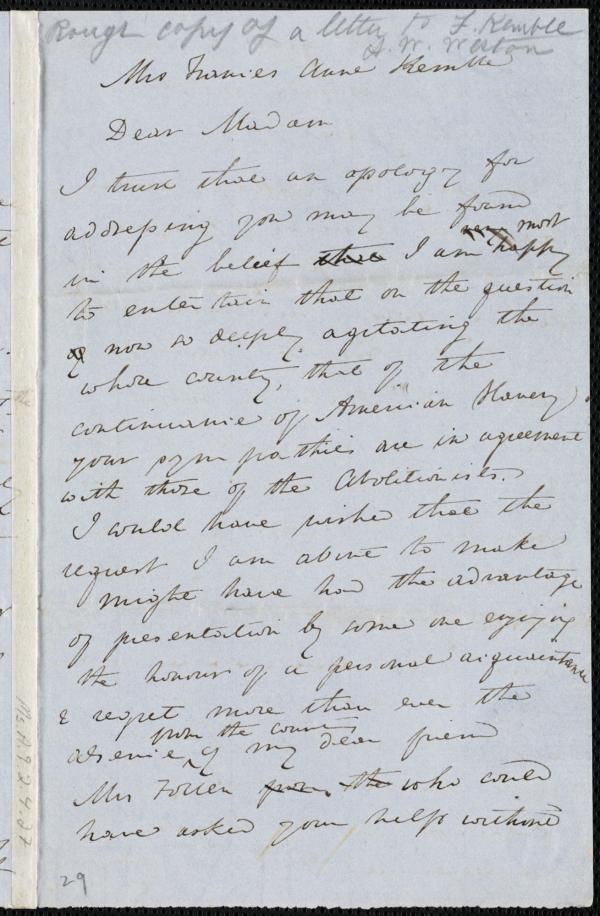 Rough copy of a letter to F. Kemble
A. W. Weston
Mrs Frances Anne Kemble
Dear Madam
I trust that an apology for
addressing you may be found
very most
in the belief that I am happy
to entertain that on the question
of now so deeply agitating the
whole country, that of the
continuance of American Slavery,
your sympathies are in agreement
with those of the Abolitionists.
I could have wished that the
request I am about to make
might have had the advantage
of presentation by some one enjoying
the honour of a personal acquaintance
& regret more than ever the
from the country
absence of my dear friend
Mrs Follen from the who could
have asked your help without
29
Ms.A.9.2.4.27